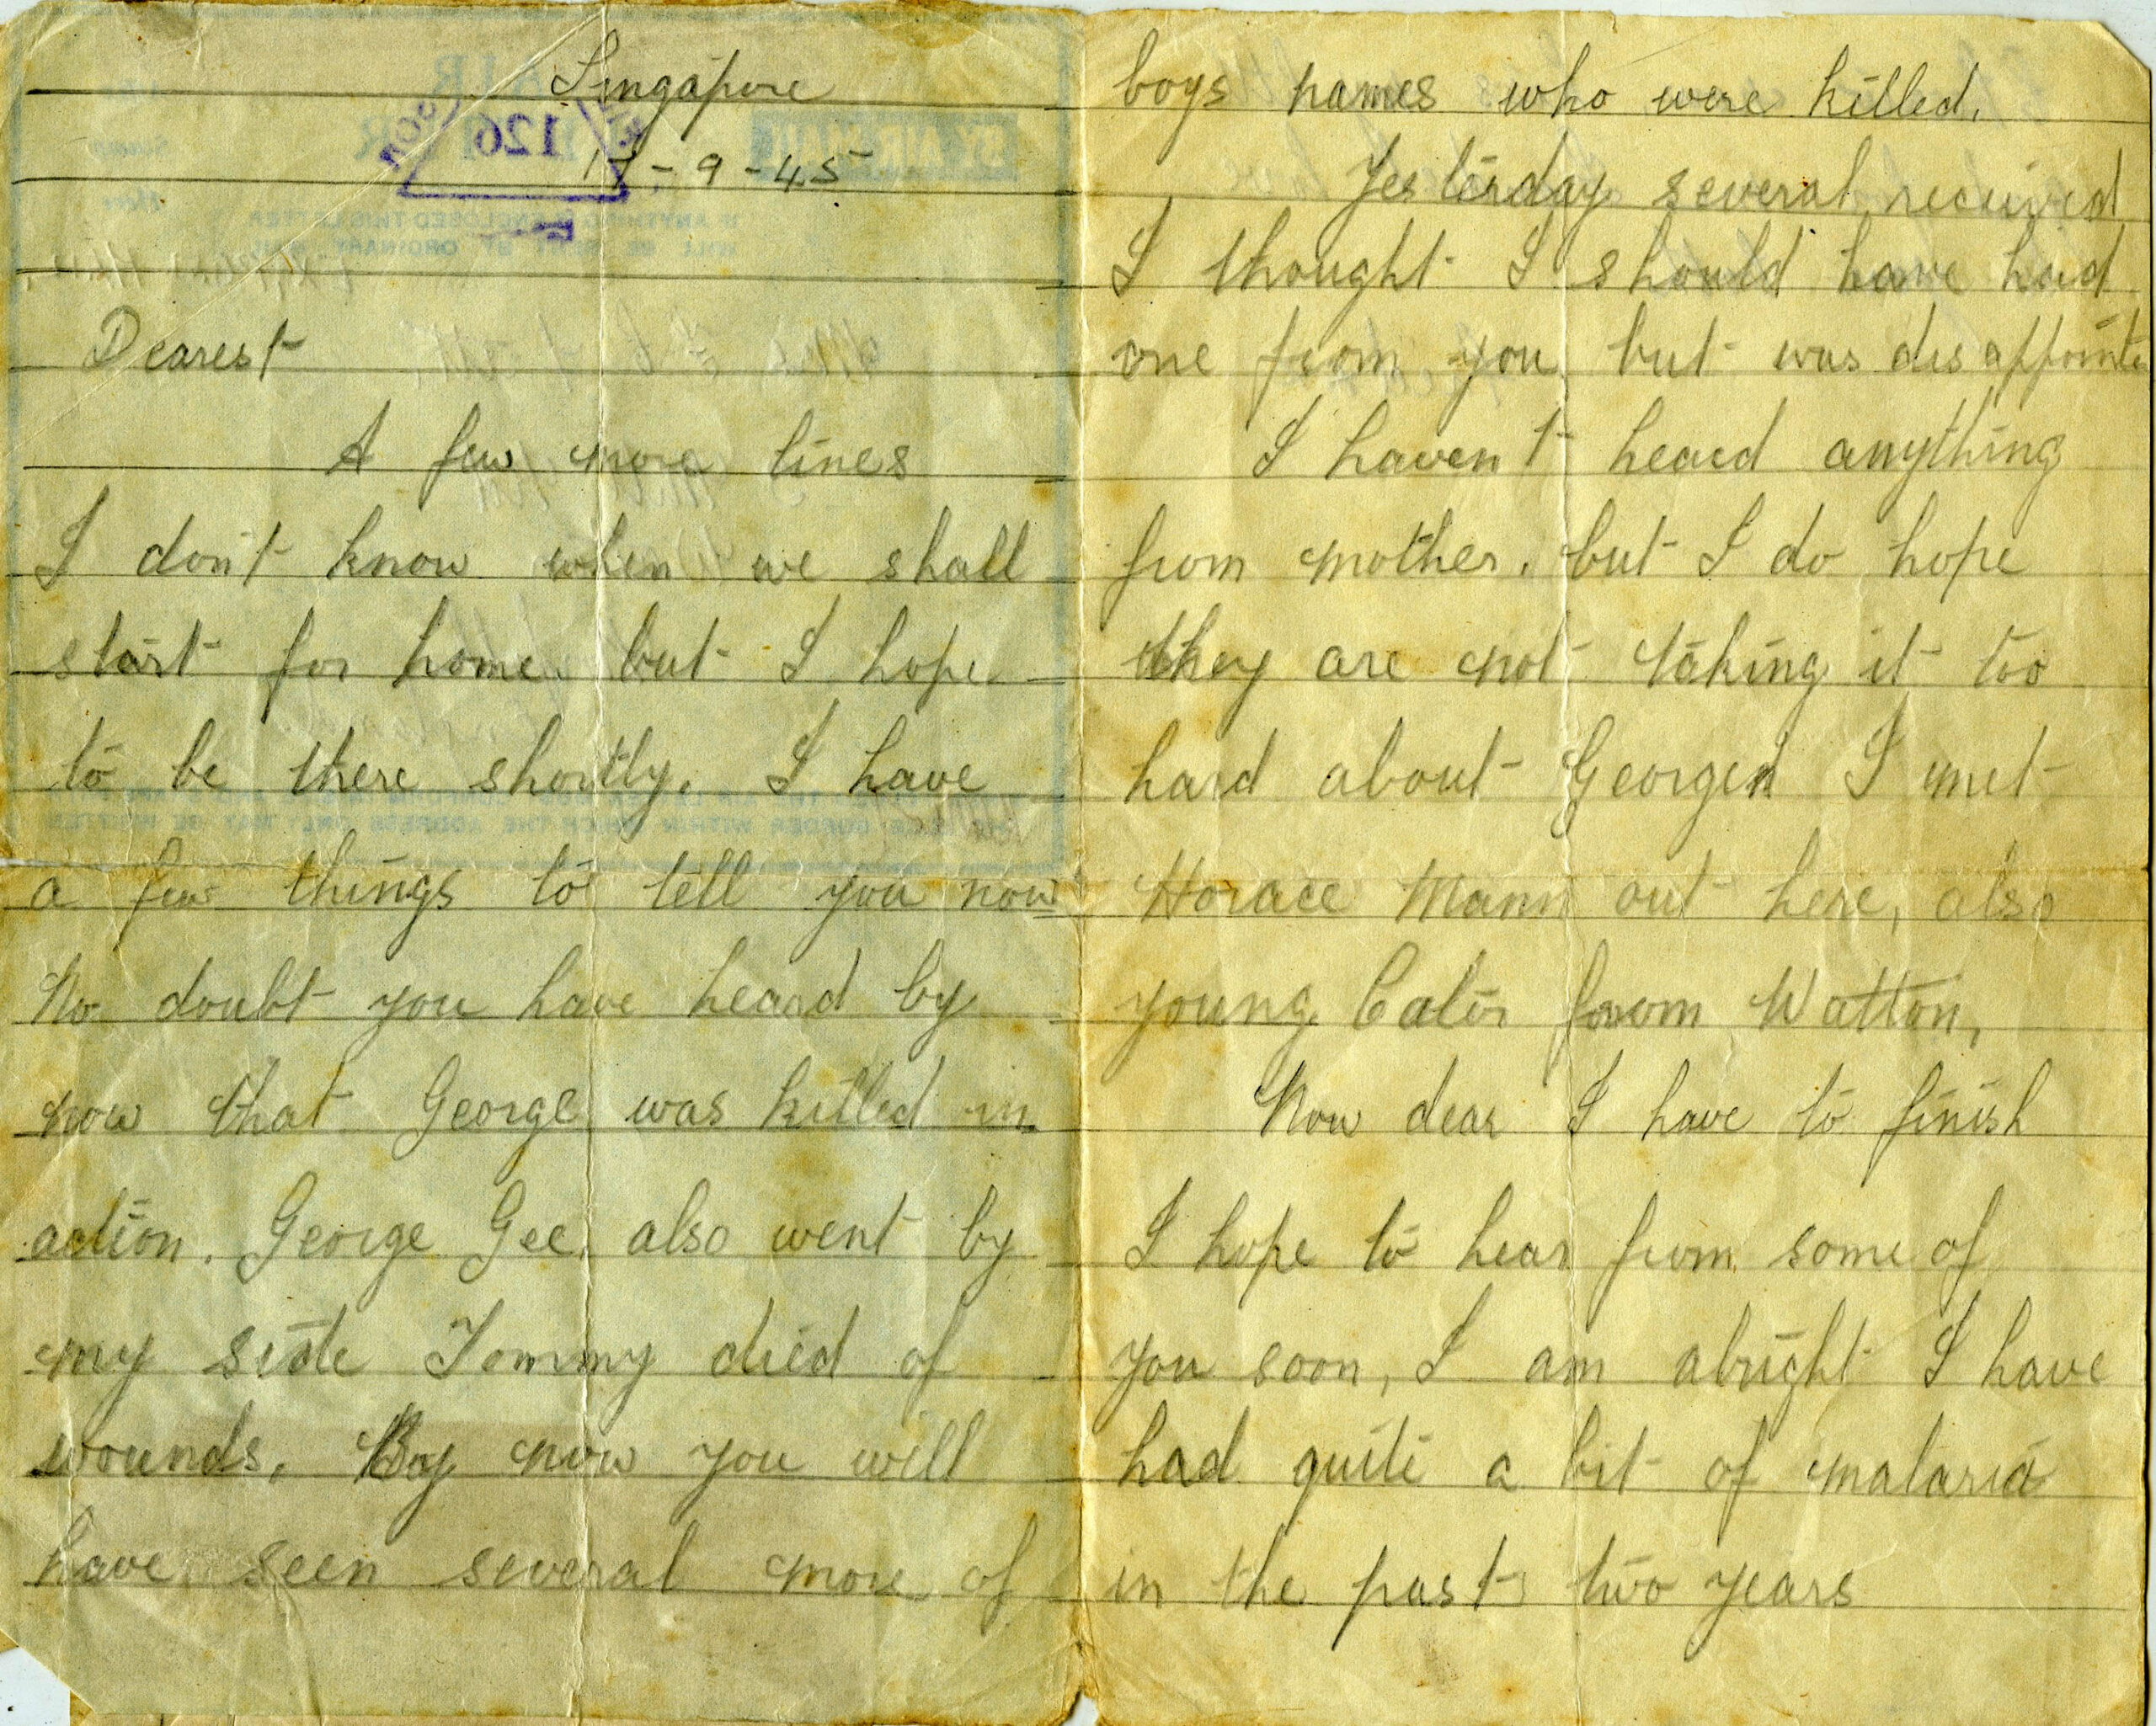 Singapore
17-9-45
126
Dearest
A few more lines
I don't know when we shall
start for home. but I hope
to be there shortly. I have
a few things to tell you now
No doubt you have heard by
now that George was killed in
action. George Gee, also went by
my side Tommy died of
wounds. By now you will
have seen several more of
boys names who were killed.
Yesterday several received
I thought I should have had
one from you but was disappointed
I haven't heard anything
from mother. but I do hope
they are not taking it too
hard about George I met
Horace Mann out here, also
young Cator from Watton,
Now dear I have to finish
I hope to hear from some of
you soon, I am alright I have
had quite a bit of malaria
in the past two years